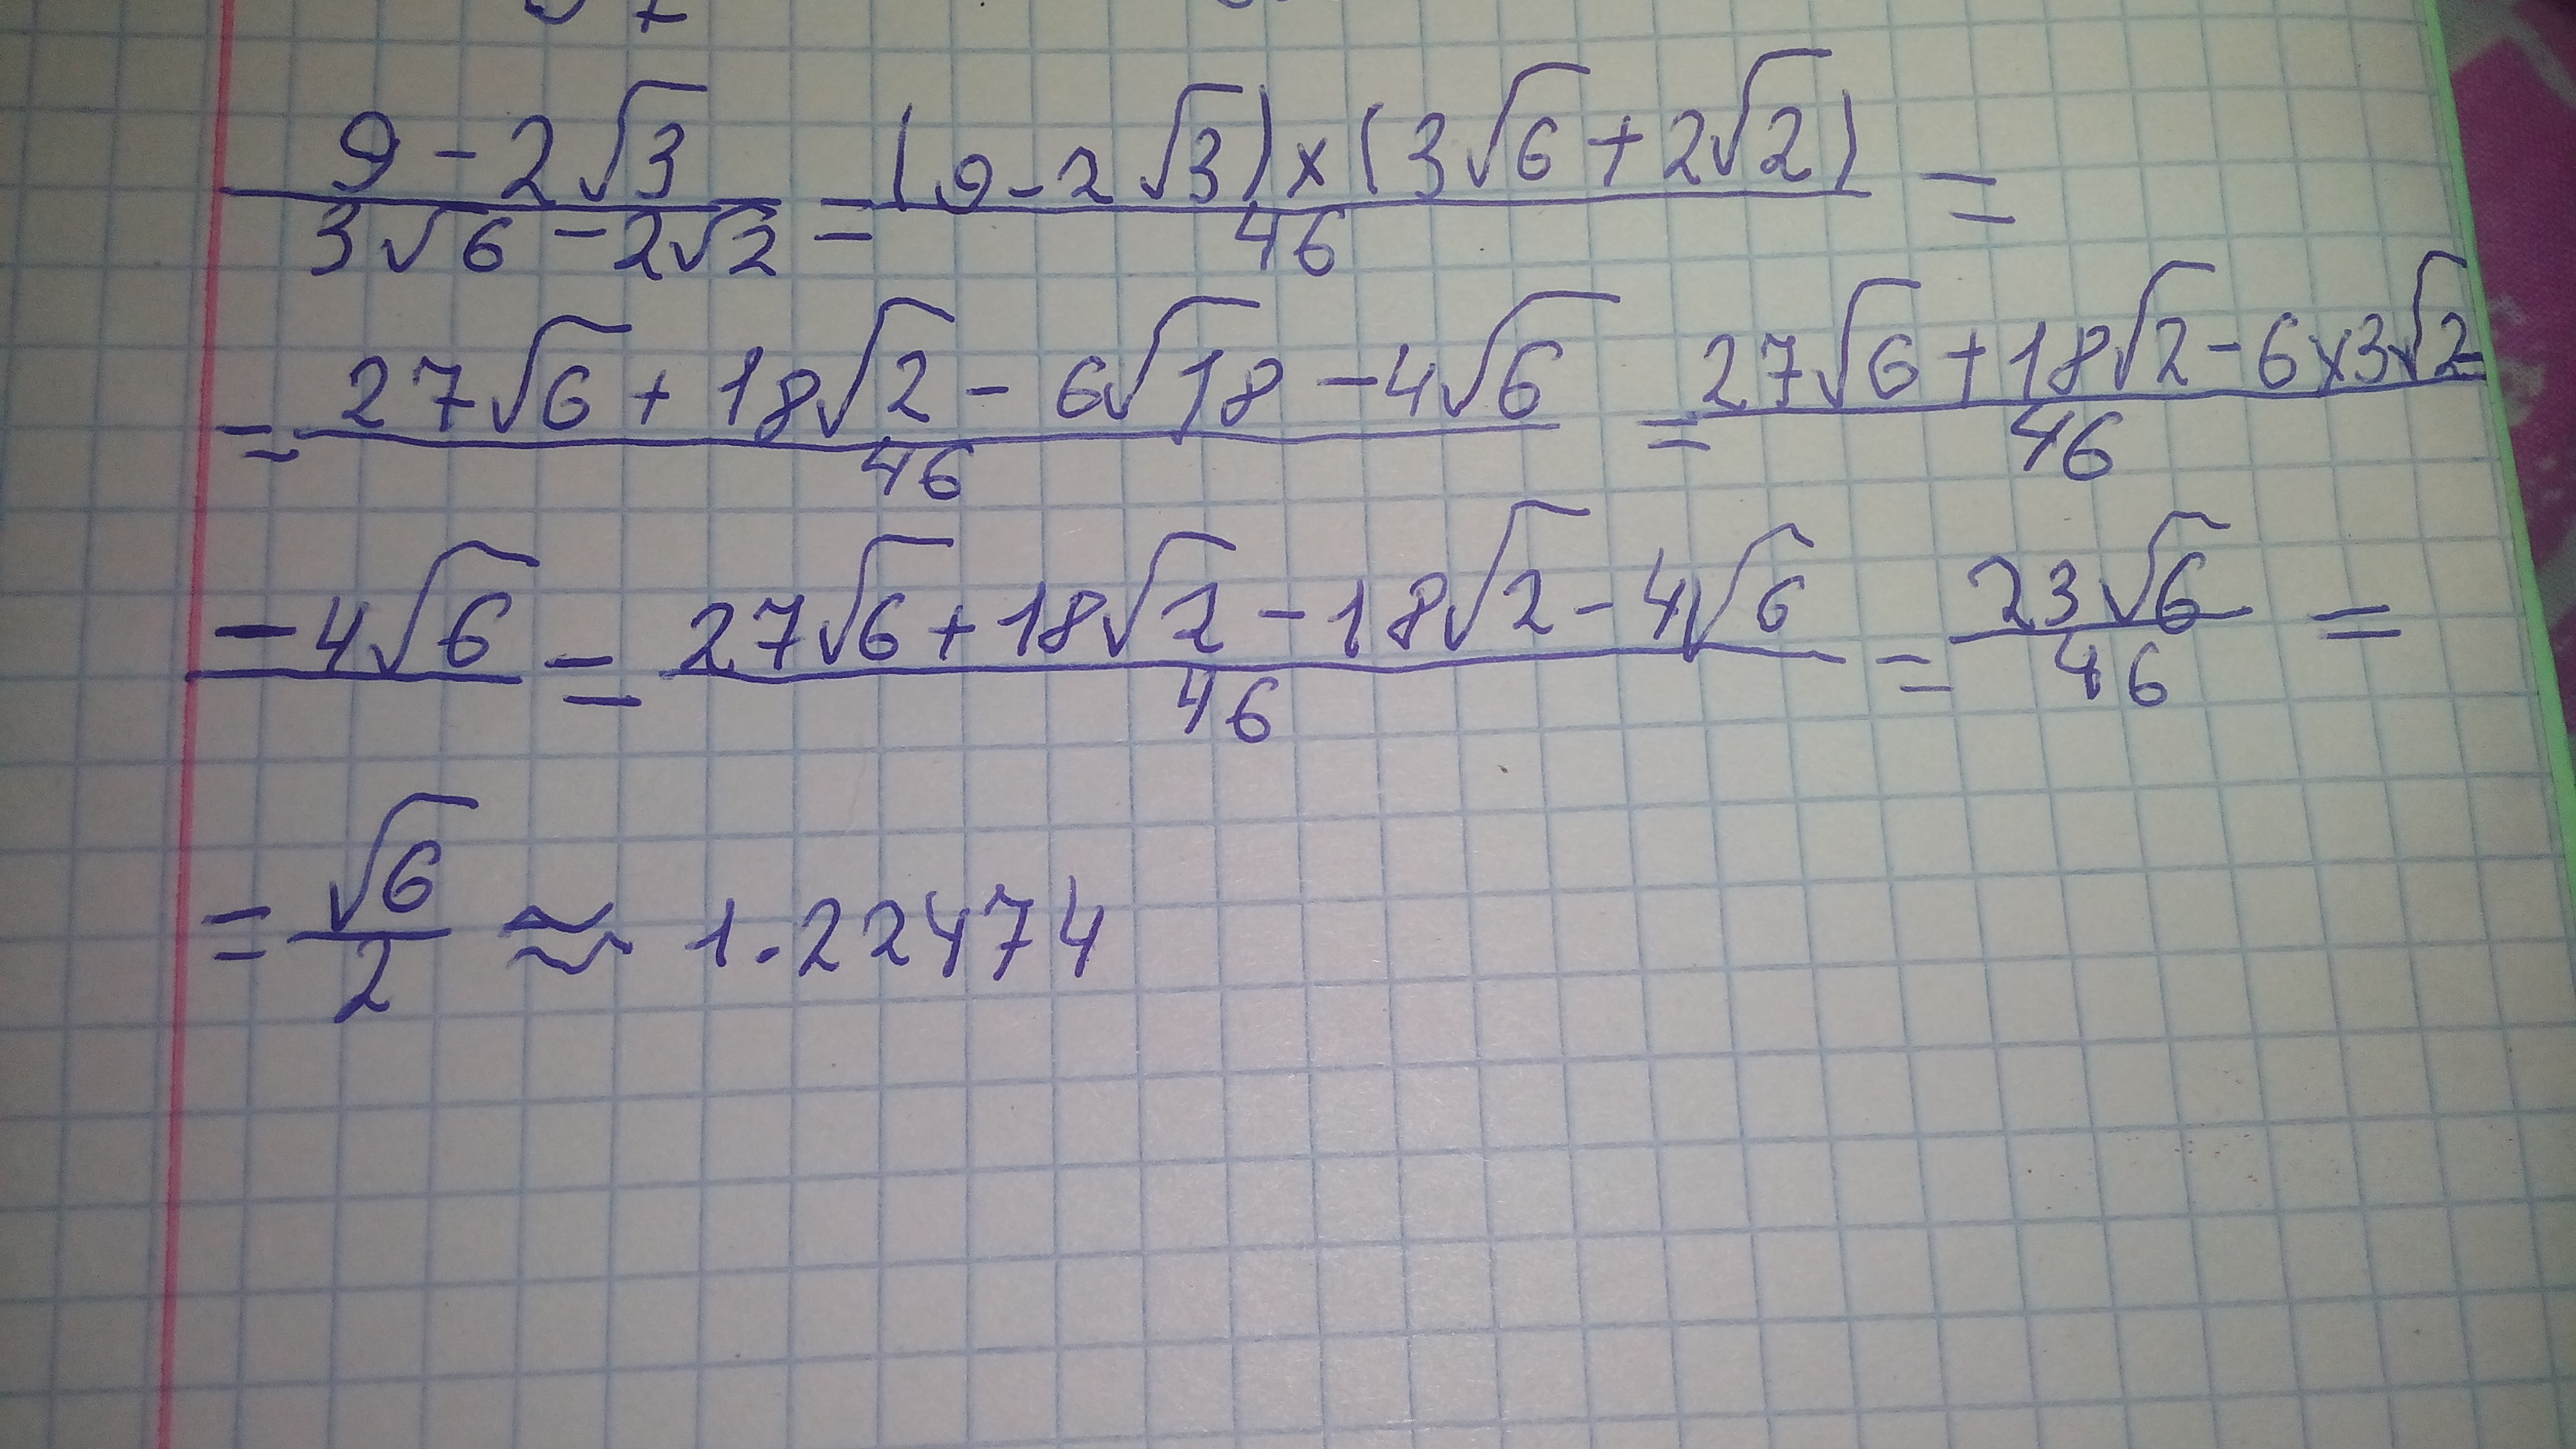 9 - 2√3 / 3√6 - 2√2 = (9 - 2√3) × (3√6 + 2√2) / 46 =
= 27√6 + 18√2 - 6√18 - 4√6 / 46 = 27√6 + 18√2 - 6×3√2 - / 46
- 4√6 = 27√6 + 18√2 - 18√2 - 4√6 / 46 = 23√6 / 46 =
= √6 / 2 ≈ 1.22474